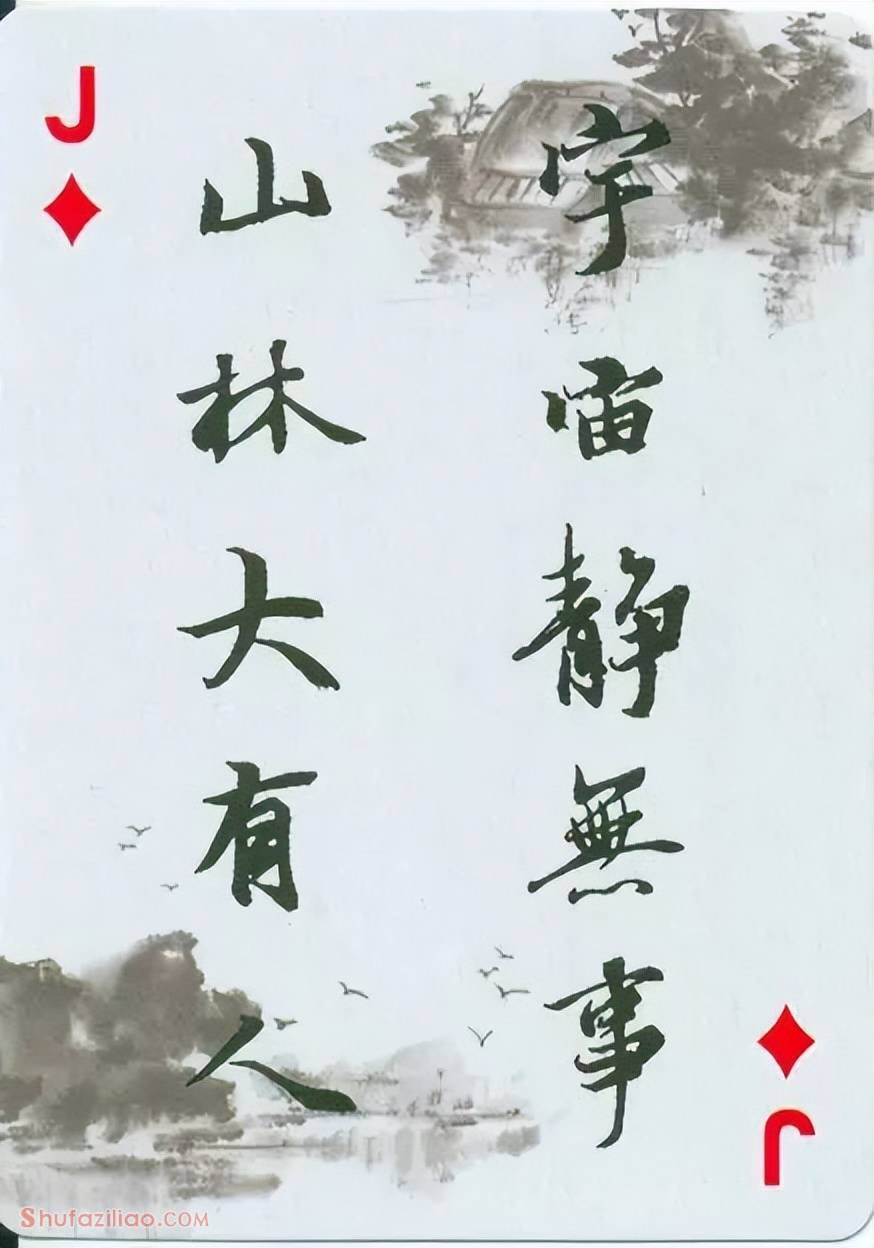 J
宇宙靜無事
山林大有人
J
Shufaziliao.COM